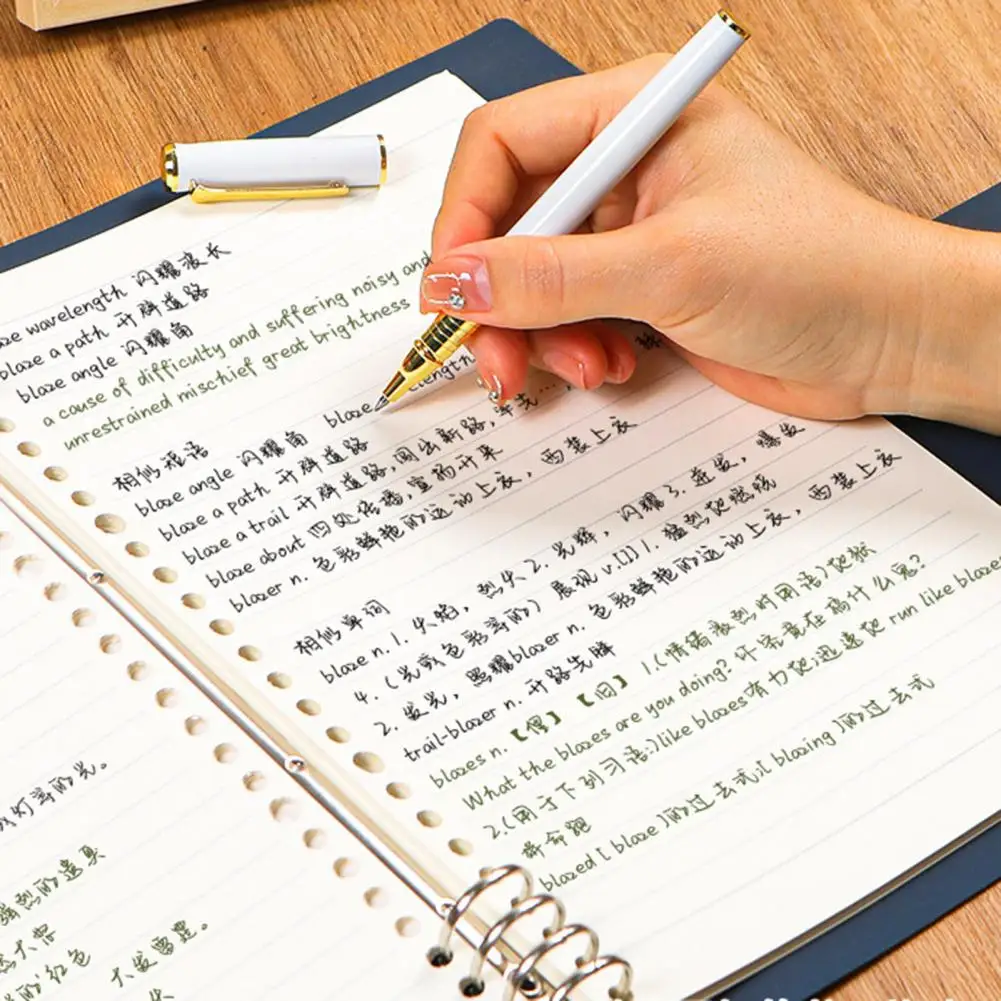 aze wavelength 闪耀波长
blaze a path 开辟道路
blaze angle 闪耀角
a cause of difficulty and suffering noisy and
unrestrained mischief great brightness
相似短语
blaze angle 闪耀角 blaze elength
blaze a path 开辟道路
blaze a trail 开辟道路,闯出新路,率先…,
blaze about 四处传播,宣扬开来
blazer n. 色彩鲜艳的运动上衣,西装上衣
相似单词
blaze n. 1. 火焰,烈火 2. 光辉,闪耀 3. 迸发,爆发
4. (光或色彩等的) 展现 v.[I] 1. 猛烈地燃烧
2. 发光,照耀 blazer n. 色彩鲜艳的运动上衣,西装上衣
trail-blazer n. 开路先锋
blazes n.【俚】【旧】1.(情绪激烈时用语)地狱
What the blazes are you doing? 你究竟在搞什么鬼?
2.(用于下列习语:)like blazes 有力地;迅速地 run like blazes
拼命跑
blazed [ blaze ]的过去式;[ blazing ]的过去式
灯等的光。
强烈的
的红色
大发雷霆。